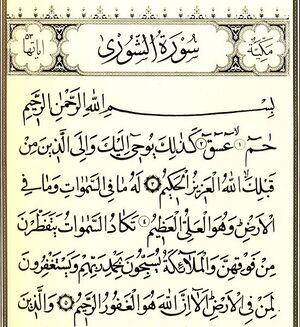 مكية سورة الشورى آياتها ٥٣
بِسْمِ اللهِ الرَّحْمٰنِ الرَّحِيمِ
حٰمٓ ١ عٓسٓقٓ ٢ كَذٰلِكَ يُوحِٓي اِلَيْكَ وَاِلَى الَّذِينَ مِنْ
قَبْلِكَ اللهُ الْعَزِيزُ الْحَكِيمُ ٣ لَهُ مَا فِي السَّمٰوَاتِ وَمَا فِي
الْاَرْضِ وَهُوَ الْعَلِيُّ الْعَظِيمُ ٤ تَكَادُ السَّمٰوَاتُ يَتَفَطَّرْنَ
مِنْ فَوْقِهِنَّ وَالْمَلٰٓئِكَةُ يُسَبِّحُونَ بِحَمْدِ رَبِّهِمْ وَيَسْتَغْفِرُونَ
لِمَنْ فِي الْاَرْضِ اَلَٓا اِنَّ اللهَ هُوَ الْغَفُورُ الرَّحِيمُ ٥ وَالَّذِينَ